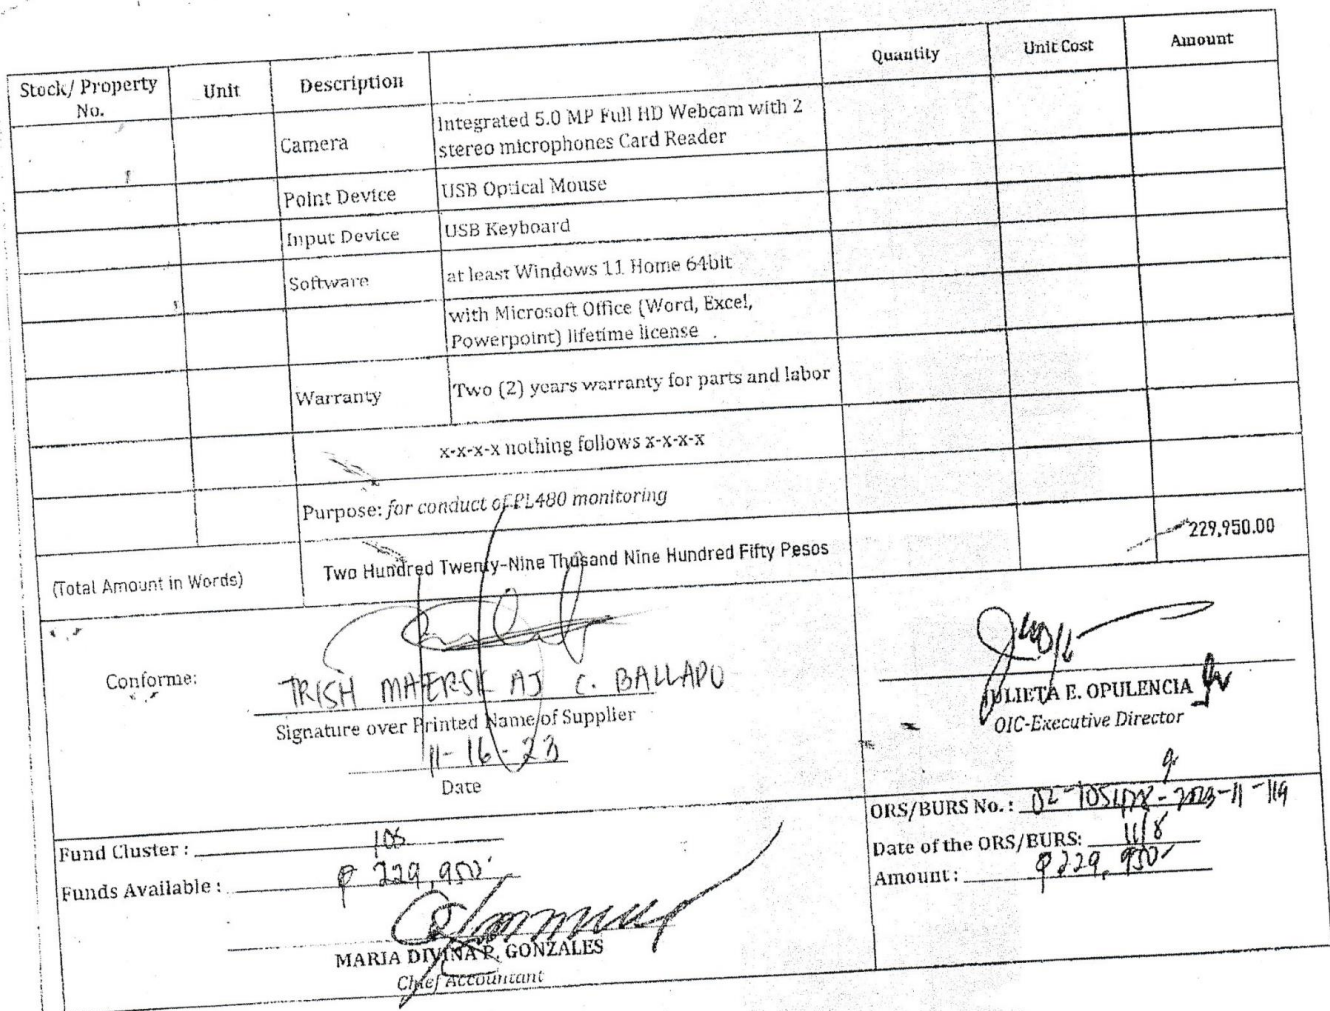 Stock/ Property No.
Unit
Description
Quantity
Unit Cost
Amount
Camera
Integrated 5.0 MP Full HD Webcam with 2
stereo microphones Card Reader
Point Device
USB Optical Mouse
Input Device
USB Keyboard
Software
at least Windows 11 Home 64bit
with Microsoft Office (Word, Excel,
Powerpoint) lifetime license
Warranty
Two (2) years warranty for parts and labor
x-x-x-x nothing follows x-x-x-x
Purpose: for conduct of PL480 monitoring
(Total Amount in Words)
Two Hundred Twenty-Nine Thusand Nine Hundred Fifty Pesos
229,950.00
Conforme:
TRISH MAERSK AJ C. BALLADO
Signature over Printed Name of Supplier
11-16-23
Date
JULIETA E. OPULENCIA
OIC-Executive Director
Fund Cluster :
Funds Available : ₱ 229,950
MARIA DIVINA P. GONZALES
Chief Accountant
ORS/BURS No. :
Date of the ORS/BURS: 11/8
Amount : ₱229,950